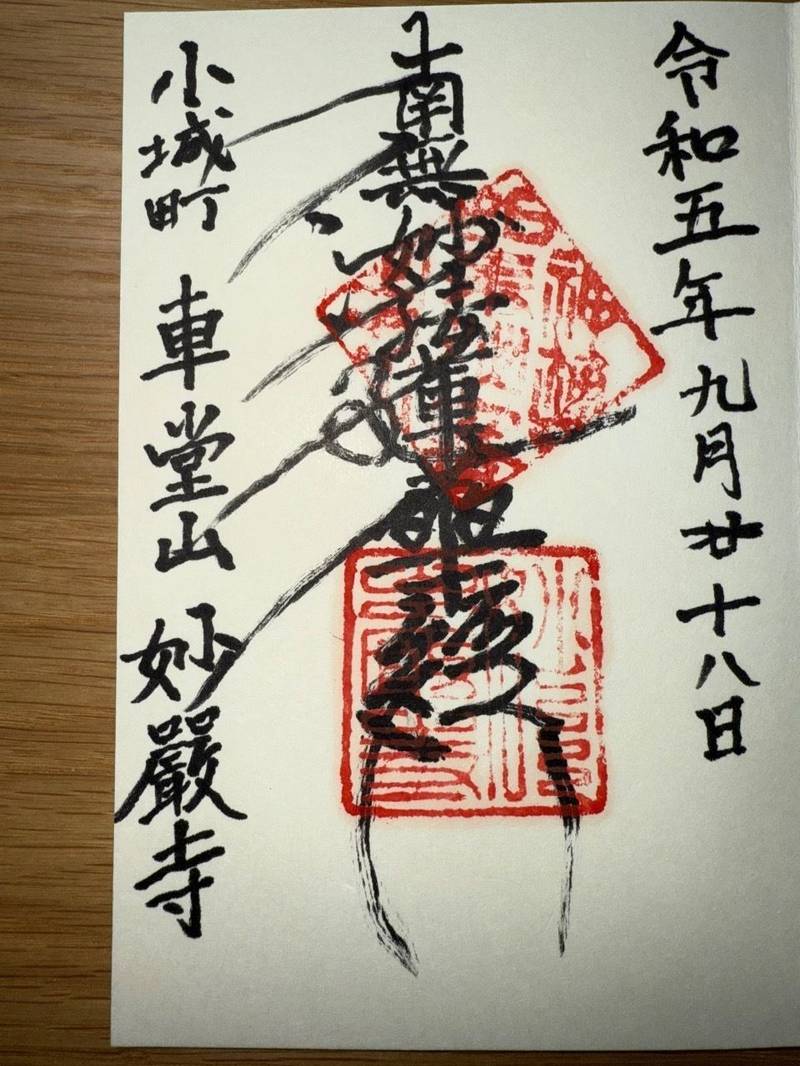 令和五年九月廿十八日
南無妙法蓮華経
小城町 車堂山 妙嚴寺